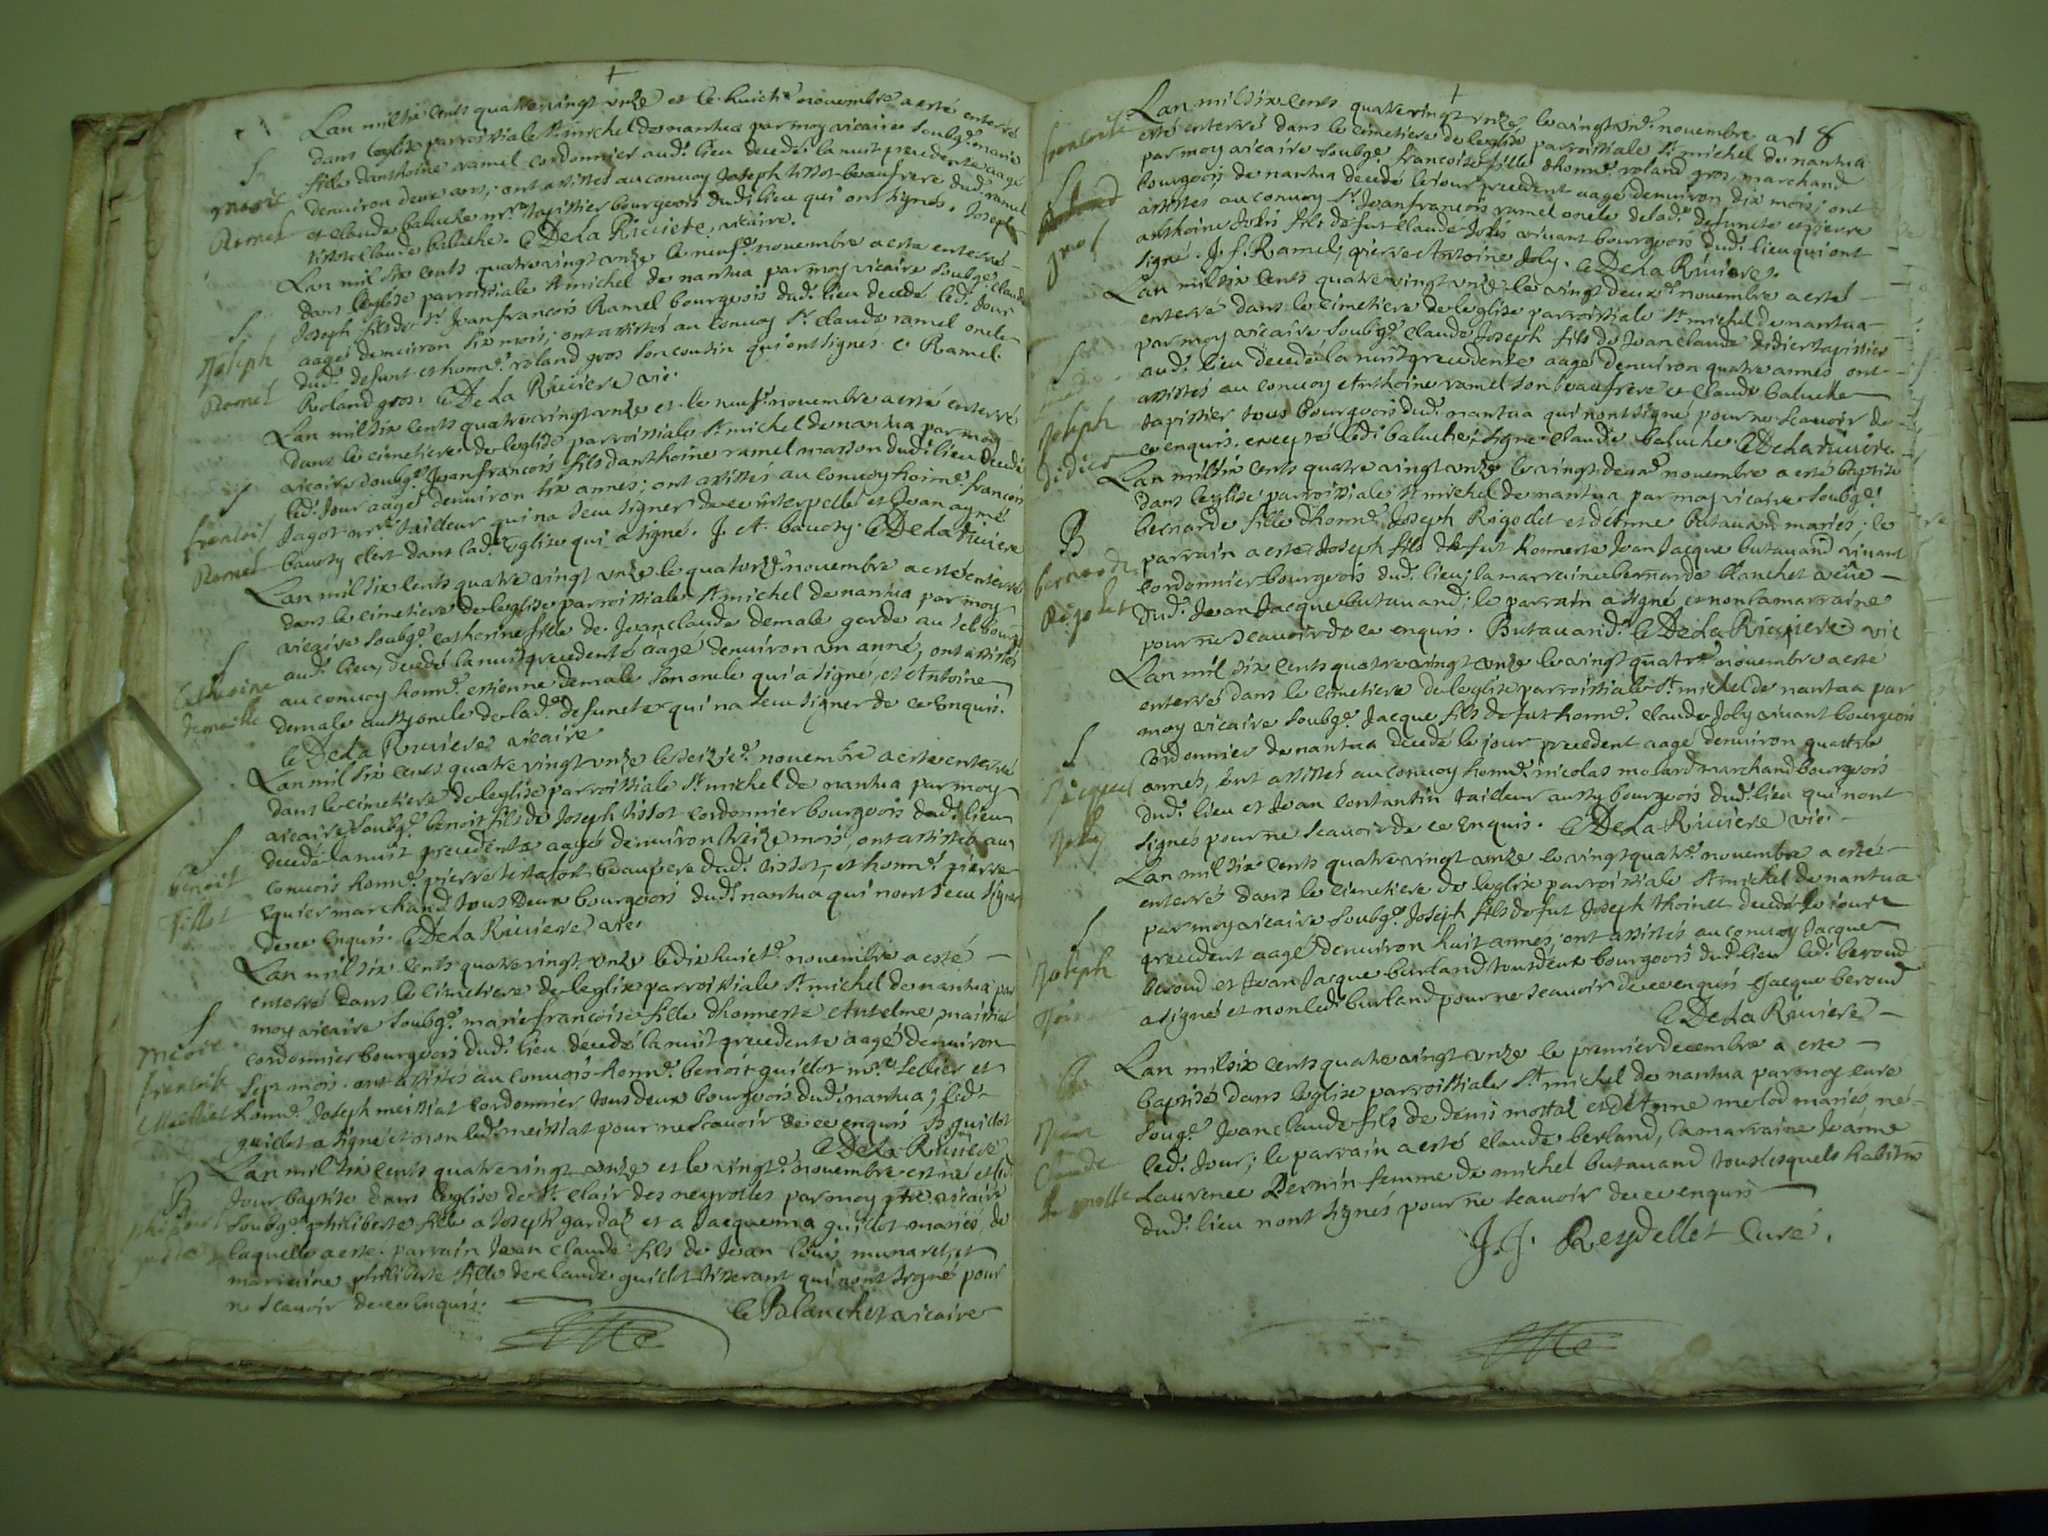 Lan mil six cents quatre vingt unze et le huict.e novembre a esté enterré
dans leglise parroissiale St michel de nantua par moy vicaire soubg.e marie
fille danthoine ramel cordonnier aud.t lieu decedé la nuit precedente aagé
denviron deux ans; ont assistés au convoy Joseph tissot beaufrere dud.t ramel
et claude baluche m.re tapissier bourgeois dud.t lieu qui ont signés. Joseph
tissot Claude baluche. C DeLa Riviere, vicaire.
S
marie
Ramel
Lan mil six cents quatre vingt unze le neuf.e novembre a esté enterré
dans leglise parroissiale St michel de nantua par moy vicaire soubg.e claude
Joseph fils de Sr Jean francois Ramel bourgeois dud.t lieu decedé led.t Jour
aagé denviron six mois; ont assistés au convoy Sr claude ramel oncle
dud.t defunt et honn.e roland gros son cousin qui ont signés. C Ramel.
Roland gros. C De La Riviere vic.
S
Joseph
Ramel
Lan mil six cents quatre vingt unze et le neuf.e novembre a esté enterré
dans le cimetiere de leglise parroissiale St michel de nantua par moy
vicaire soubg.e Jean francois fils danthoine ramel masson dud.t lieu decedé
led.t Jour aagé denviron six annes; ont assistés au convoy honn.e francois
Jagot m.re tailleur qui na sceu signer de ce interpellé et Jean aymé
baucty clert dans lad.te Eglise qui a signé. J. A. baucty. C De La Riviere
S
francois
Ramel
Lan mil six cents quatre vingt unze le quatorz.e novembre a esté enterré
dans le cimetiere de leglise parroissiale St michel de nantua par moy
vicaire soubg.e catherine fille de Jean claude demale garde au sel bourg.s
aud.t lieu, decedé la nuit precedente aagé denviron un anné; ont assistés
au convoy honn.e estienne demale son oncle qui a signé, et Antoine
demale aussy oncle de lad.te defuncte qui na sceu signer de ce Enquis.
C De La Riviere vicaire
S
Catherine
demalle
Lan mil six cents quatre vingt unze le seizie.e novembre a esté enterré
dans le cimetiere de leglise parroissiale St michel de nantua par moy
vicaire soubg.e benoit fils de Joseph tissot cordonnier bourgeois dud.t lieu
decedé la nuit precedente aagé denviron treize mois, ont assistés au
convois honn.e pierre beaupere dud.t tissot, et honn.e pierre
Equier marchand tous Deux bourgeois dud.t nantua qui nont sceu signer
de ce Enquis. C De La Riviere vic.
S
benoit
Tissot
Lan mil six cents quatre vingt unze le dix huict.e novembre a esté
enterré dans le cimetiere de leglise parroissiale St michel de nantua par
moy vicaire soubg.e marie francoise fille dhonnerte Antelme maissiat
cordonnier bourgeois dud.t lieu decedé la nuit precedente aagé denviron
sept mois. ont assistés au convois honn.e benoit guillot m.re sellier et
honn.e Joseph meissiat cordonnier tous deux bourgeois dud.t nantua; led.t
guillot a signé et non led.t meissiat pour ne scavoir de ce enquis B guillot
C De La Riviere
S
marie
francoise
Meissiat
Lan mil six cents quatre vingt unze et le vingt.e novembre est né et led.t
Jour baptisé dans leglise de St. clair des neyrolles par moy ptre vicaire
soubg.e philiberte fille a Joseph gardaz et a Jacquema guillot mariés de
laquelle a esté parrain Jean claude fils de Jean louis munaret, et
marraine philiberte fille de claude guillot tisserant qui nont signé pour
ne scavoir de ce Enquis.
C Blanchet vicaire
B
Lan mil six cents quatre vingt unze le vingt un.e novembre a 18
esté enterré dans le cimetiere de leglise parroissiale St michel de nantua
par moy vicaire soubg.e francoise fille dhonn.e roland gros marchand
bourgeois de nantua decedé le Jour precedent aagé denviron dix mois; ont
assistés au convoy Sr Jean francois ramel oncle de lad.te defuncte et pierre
anthoine Jolis fils de fut claude Jolis vivant bourgeois dud.t lieu qui ont
signé. J. f. Ramel, pierre Antoine Joly. C De La Riviere.
francoise
S
gros
Lan mil six cents quatre vingt unze le vingt deux.e novembre a esté
enterré dans le cimetiere de leglise parroissiale St michel de nantua
par moy vicaire soubg.e Claude Joseph fils de Jean claude didier tapissier
aud.t lieu decedé la nuit precedente aagé denviron quatre annés ont
assistés au convoy Anthoine ramel son beaufrere et Claude baluche
tapissier tous bourgeois dud.t nantua qui nont signe pour ne scavoir de
ce enquis. excepté led.t baluche, signe claude baluche C De La Riviere
S
Joseph
didier
Lan mil six cents quatre vingt unze le vingt deux.e novembre a esté baptisé
dans leglise parroissiale St michel de nantua par moy vicaire soubg.e
bernarde fille dhonn.e Joseph Rigodet et dAnne butavand mariés; le
parrain a esté Joseph fils de fut honnerte Jean Jacque butavand vivant
cordonnier bourgeois dud.t lieu; la marraine bernarde blanchet veüe
dud.t Jean Jacque butavand; le parrain a signé et non la marraine
pour ne scavoir de ce enquis. Butavand. C De La Riviere vic
B
bernarde
Rigodet
Lan mil six cents quatre vingt unze le vingt quatr.e novembre a esté
enterré dans le cimetiere de leglise parroissiale St michel de nantua par
moy vicaire soubg.e Jacque fils de fut honn.e claude Joly vivant bourgeois
cordonnier de nantua decedé le jour precedent aagé denviron quattre
annés, ont assistés au convoy honn.e nicolas molard marchand bourgeois
dud.t lieu et Jean Contantin tailleur aussy bourgeois dud.t lieu qui nont
signés pour ne scavoir de ce Enquis. C De La Riviere vic.
S
Jacque
Joly
Lan mil six cents quatre vingt unze le vingt quatr.e novembre a esté
enterré dans le cimetiere de leglise parroissiale St michel de nantua
par moy vicaire soubg.e Joseph fils de fut Joseph thoinet decedé le jour
precedent aagé denviron huit annés; ont assistés au convoy Jacque
beroud et Jean Jacque burland tous deux bourgeois dud.t lieu led.t beroud
a signés et non led.t burland pour ne scavoir de ce enquis Jacque beroud
C De La Riviere
S
Joseph
Lan mil six cents quatre vingt unze le premier decembre a esté
baptisé dans leglise parroissiale St michel de nantua par moy curé
soug.e Jean claude fils de denis mortaz et dAnne melod mariés né
led.t Jour; le parrain a esté claude berland, la marraine Jeanne
Laurence Pernin femme de michel butavand tous lesquels habitans
dud.t lieu nont signés pour ne scavoir de ce enquis
J. J. Reydellet Curé.
Jean
Claude